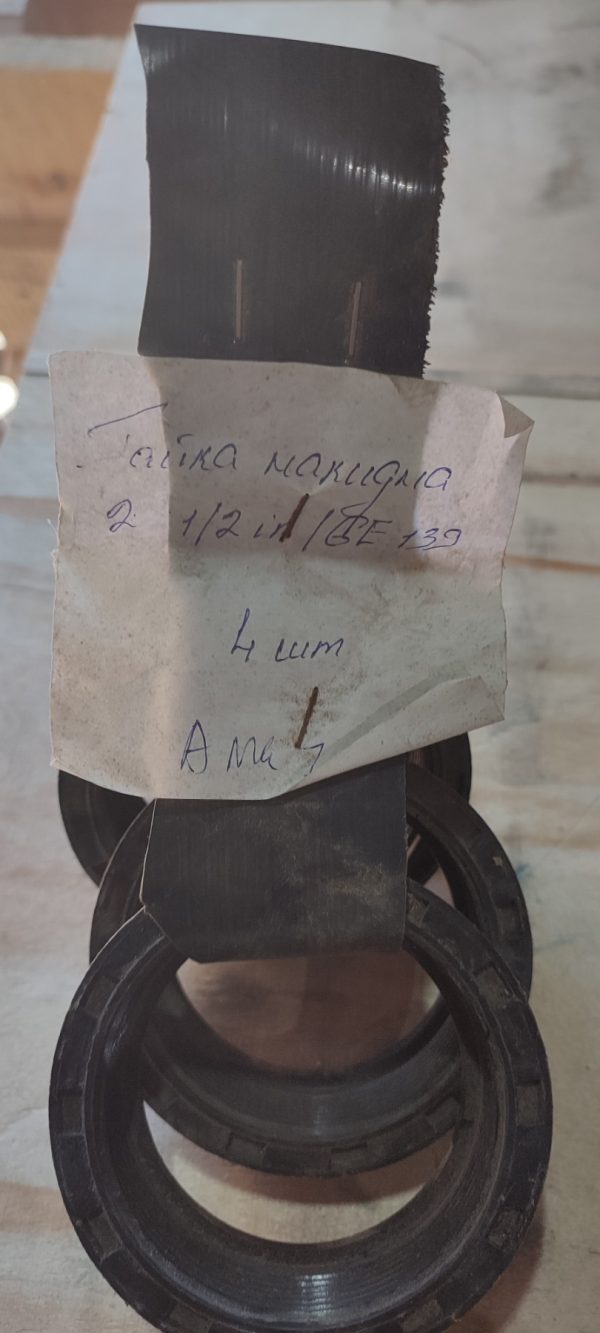 Гайка накидна
2 1/2 in/GE 139
4 шт
Амаз